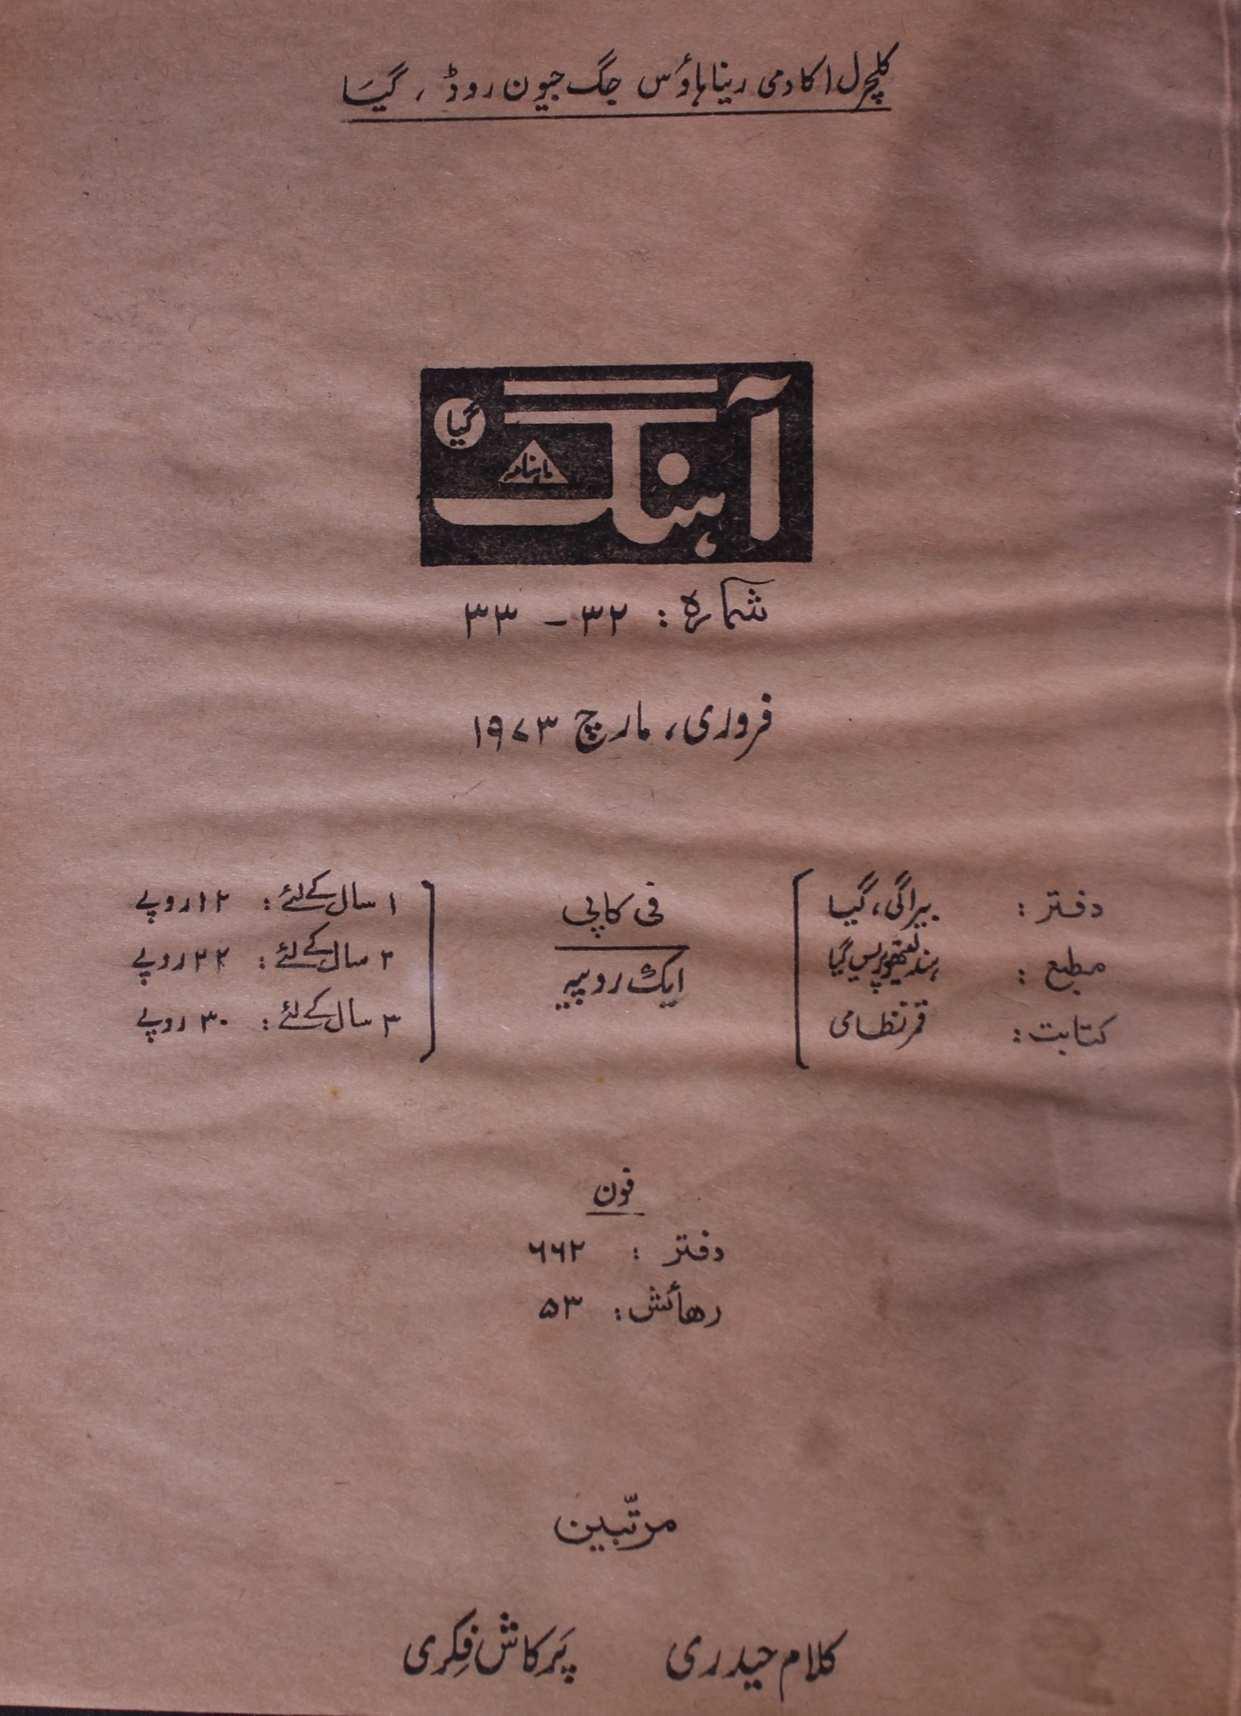 کلچرل اکادمی رینا ہاؤس جگ جیون روڈ، گیا
آہنگ
ماہنامہ
گیا
شمارہ: ۳۲ - ۳۳
فروری، مارچ ۱۹۷۳
دفتر: بیراگی، گیا
مطبع: ہند لیتھو پریس گیا
کتابت: قمر نظامی
فی کاپی
ایک روپیہ
۱ سال کے لئے: ۱۲ روپے
۲ سال کے لئے: ۲۲ روپے
۳ سال کے لئے: ۳۰ روپے
فون
دفتر: ۶۶۲
رھائش: ۵۳
مرتّبین
کلام حیدری پرکاش فکری